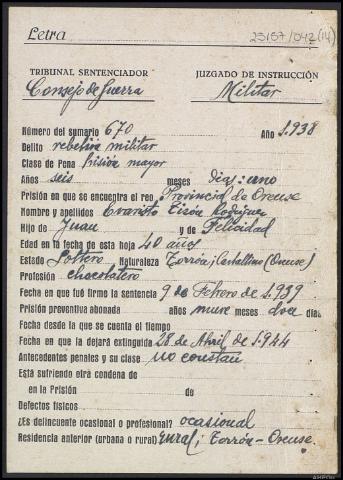 Letra
23167/042 (14)
TRIBUNAL SENTENCIADOR JUZGADO DE INSTRUCCIÓN
Consejo de Guerra Militar
Número del sumario 670 Año 1.938
Delito rebelión militar
Clase de Pena prisión mayor
Años seis meses días: uno
Prisión en que se encuentra el reo Provincial de Orense
Nombre y apellidos Evaristo Rodríguez
Hijo de Juan y de Felicidad
Edad en la fecha de esta hoja 40 años
Estado Soltero Naturaleza Torrón; Carballino (Orense)
Profesión chocolatero
Fecha en que fué firme la sentencia 9 de Febrero de 1.939
Prisión preventiva abonada años meses doce días
Fecha desde la que se cuenta el tiempo
Fecha en que la dejará extinguida 28 de Abril de 1.944
Antecedentes penales y su clase no constan
Está sufriendo otra condena de
en la Prisión de
Defectos físicos
¿Es delincuente ocasional o profesional? ocasional
Residencia anterior (urbana o rural) rural; Torrón - Orense.